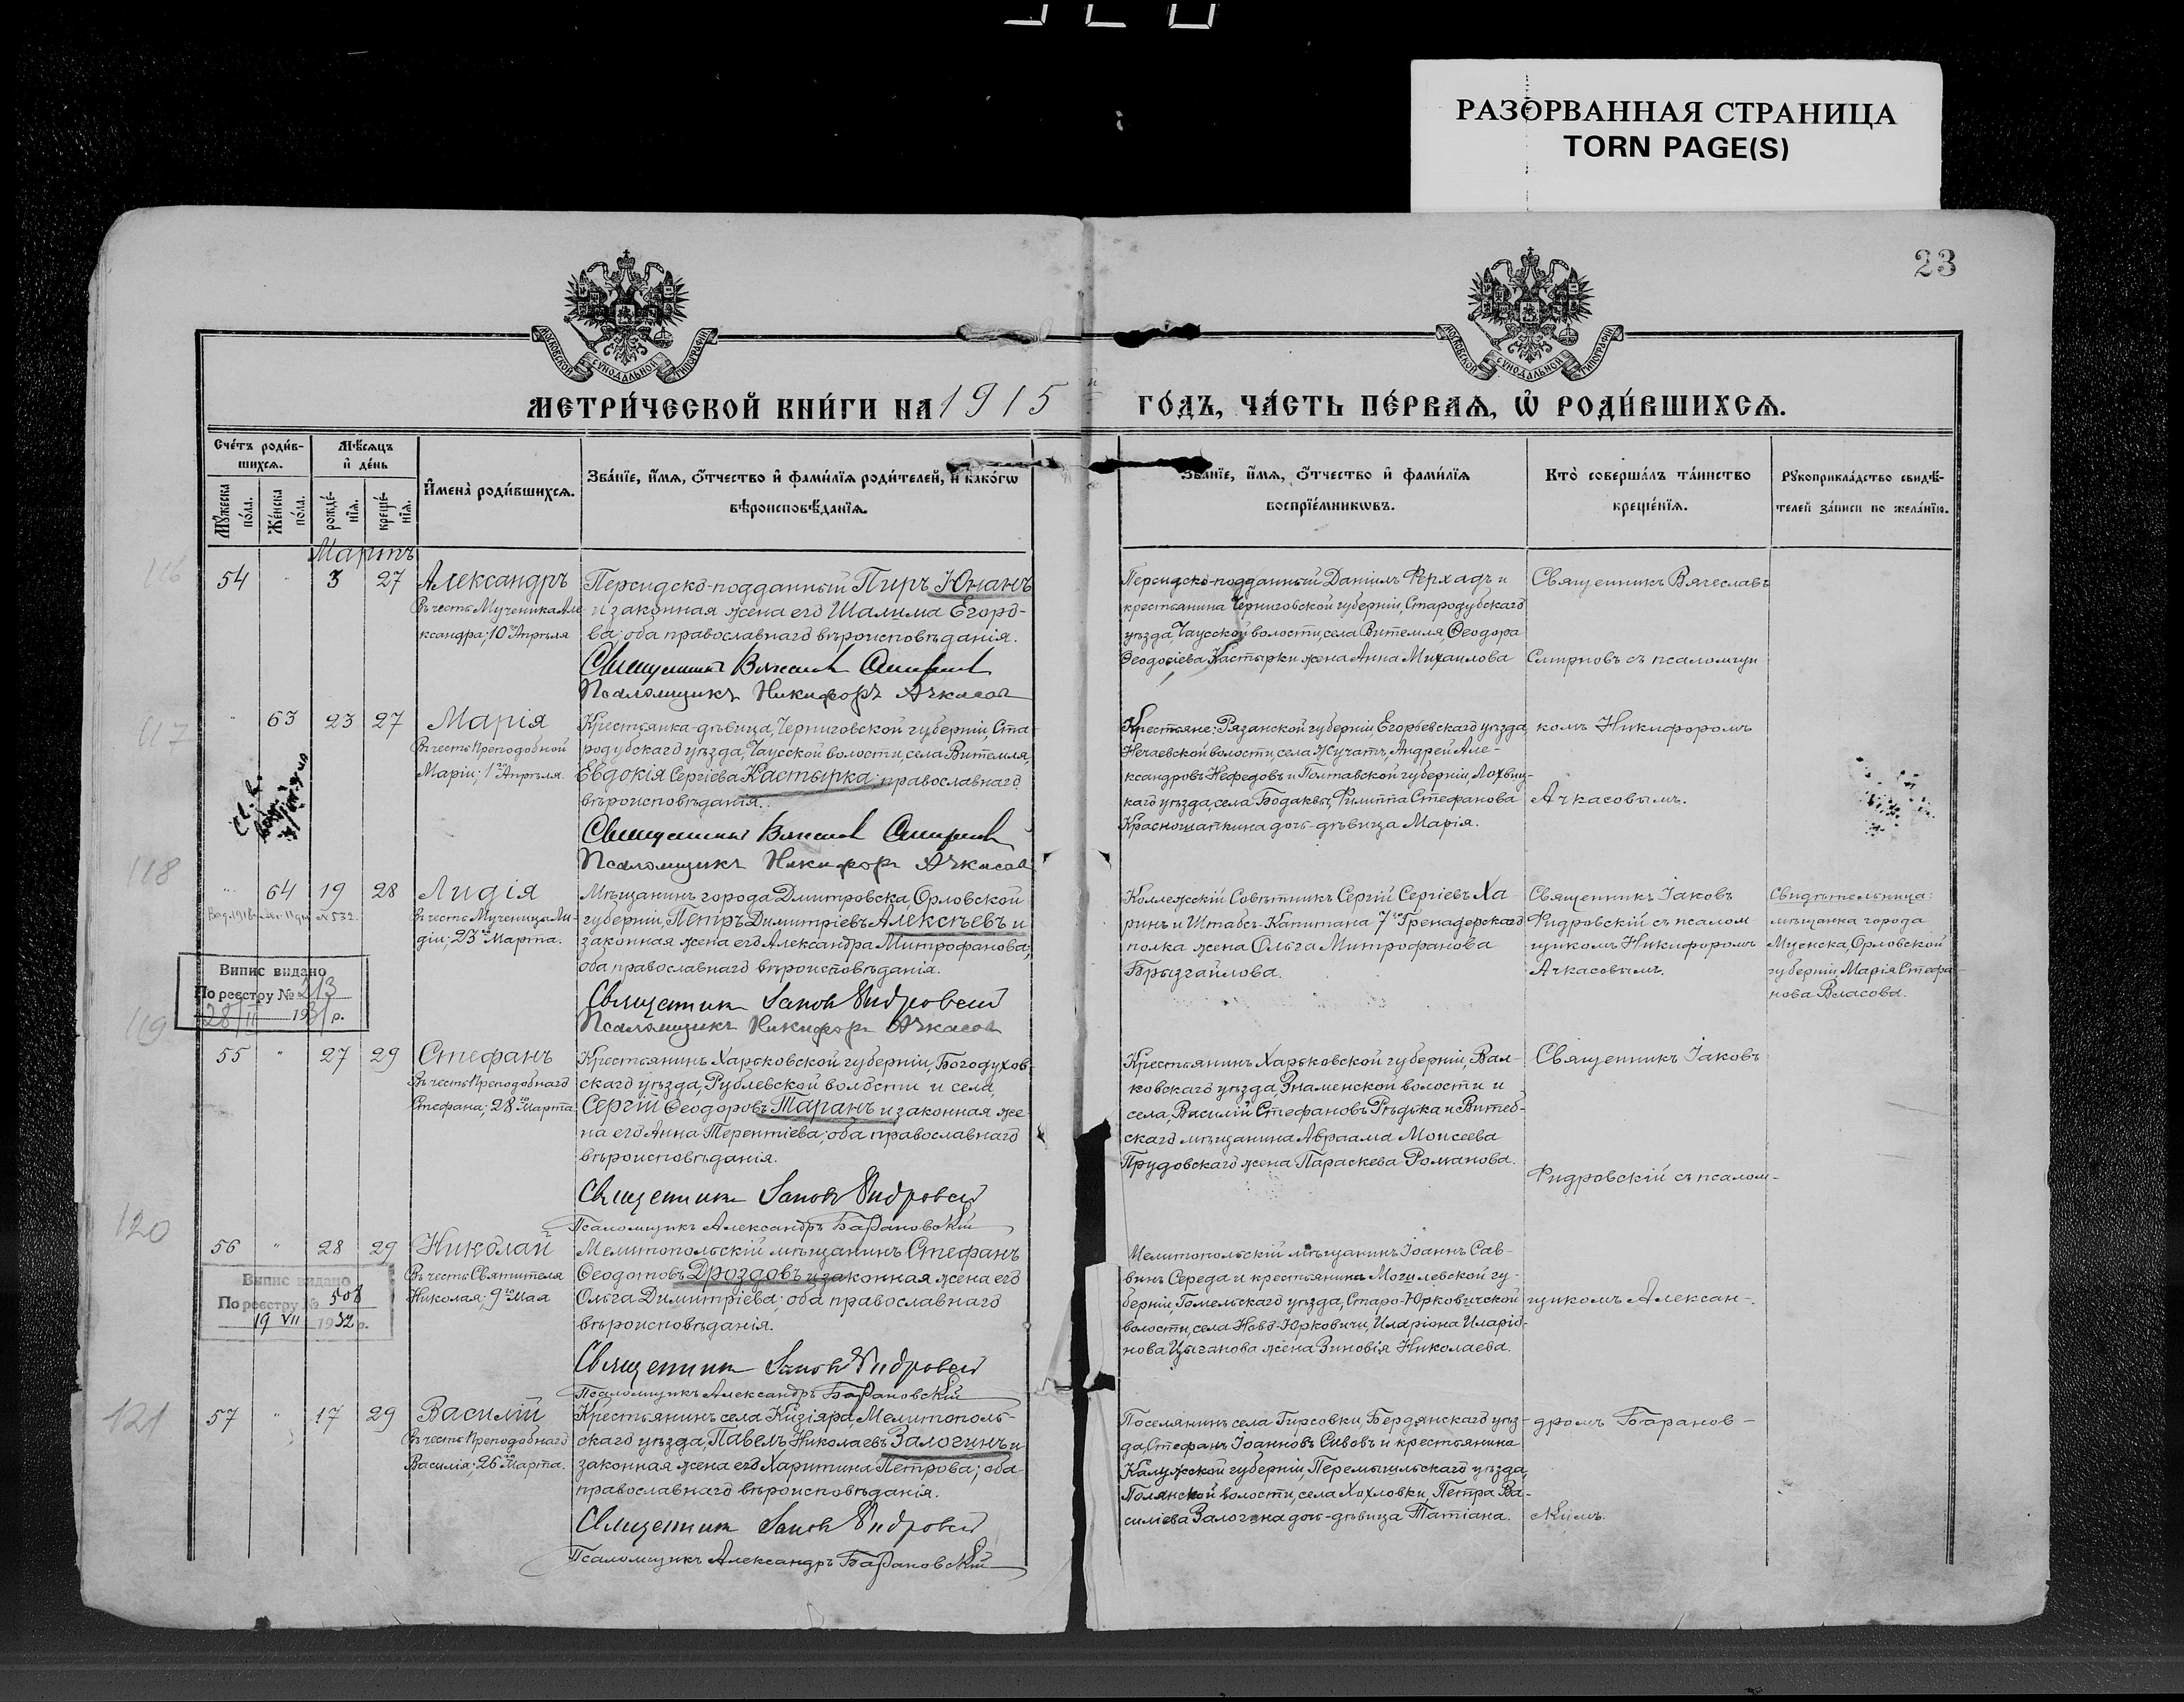 РАЗОРВАННАЯ СТРАНИЦА
TORN PAGE(S)
23
МОСКОВСКОЙ СѴНОДАЛЬНОЙ ТИПОГРАФІИ
МОСКОВСКОЙ СѴНОДАЛЬНОЙ ТИПОГРАФІИ
МЕТРИ́ЧЕСКОЙ КНИ́ГИ НА 1915
ГО́ДЪ, ЧА́СТЬ ПЕ́РВАѦ, Ѡ҆ РОДИ́ВШИХСѦ.
Сче́тъ роди́в-
шихсѧ.
Мѣ́сѧцъ
и҆ де́нь
Мꙋ́жеска по́ла.
Же́нска по́ла.
рожде́-
нїѧ.
креще́-
нїѧ.
И҆мена̀ роди́вшихсѧ.
Зва́нїе, и҆́мѧ, ѻ҆́тчество и҆ фами́лїѧ роди́телей, и҆ како́гѡ
вѣроисповѣ́данїѧ.
Зва́нїе, и҆́мѧ, ѻ҆́тчество и҆ фами́лїѧ
воспрїе́мникѡвъ.
Кто̀ соверша́лъ та́инство
креще́нїѧ.
Рꙋкоприкла́дство свидѣ́-
телей за́писи по жела́нїю.
Мартъ
116
54 " 3 27
Александръ
Въ честь Мученика Але-
ксандра; 10го Апрѣля
Персидско-подданный Пиръ Юнанъ
и законная жена его Шалима Егоро-
ва; оба православнаго вѣроисповѣданія.
Священникъ Вячеслав Смирнов
Псаломщикъ Никифоръ Ачкасов
Персидско-подданный Даніилъ Ферхадъ и
крестьянина Черниговской губерніи, Стародубскаго
уѣзда, Чаусской волости, села Витемля, Ѳеодора
Ѳеодосіева Кастырки жена Анна Михаилова
Священникъ Вячеславъ
Смирновъ съ псаломщи
117
" 63 23 27
Марія
Въ честь Преподобной
Маріи; 1го Апрѣля.
Крестьянка-дѣвица, Черниговской губерніи, Ста-
родубскаго уѣзда, Чаусской волости, села Витемля,
Евдокія Сергіева Кастырка; православнаго
вѣроисповѣданія.
Священникъ Вячеслав Смирнов
Псаломщикъ Никифор Ачкасов
Крестьяне: Рязанской губерніи Егорьевскаго уѣзда,
Нечаевской волости, села Жучатъ, Андрей Але-
ксандровъ Нефедовъ и Полтавской губерніи, Лохвиц-
каго уѣзда, села Бодаквы, Филиппа Стефанова
Красношапкина дочь-дѣвица Марія.
комъ Никифоромъ
Ачкасовымъ.
118
" 64 19 28
Лидія
Въ честь Мученицы Ли-
діи; 23го Марта.
Випис видано
По реєстру № 213
28/II 1931 р.
Мѣщанинъ города Дмитровска, Орловской
губерніи, Петръ Димитріевъ Алексѣевъ и
законная жена его Александра Митрофанова;
оба православнаго вѣроисповѣданія.
Священник Іаков Фидровский
Псаломщикъ Никифор Ачкасов
Коллежскій Совѣтникъ Сергій Сергіевъ Ха-
ринъ и Штабсъ-Капитана 7го Гренадерскаго
полка жена Ольга Митрофанова
Брызгайлова.
Священникъ Іаковъ
Фидровскій съ псалом
щикомъ Никифоромъ
Ачкасовымъ.
Свидѣтельница:
мѣщанка города
Мценска, Орловской
губерніи, Марія Стефа-
нова Власова.
119
55 " 27 29
Стефанъ
Въ честь Преподобнаго
Стефана; 28го Марта
Крестьянинъ Харьковской губерніи, Богодухов-
скаго уѣзда, Рублевской волости и села,
Сергій Ѳеодоровъ Таранъ и законная же-
на его Анна Терентіева; оба православнаго
вѣроисповѣданія.
Священник Іаков Фидровский
Псаломщикъ Александръ Барановскій
Крестьянинъ Харьковской губерніи, Вал-
ковскаго уѣзда, Знаменской волости и
села, Василій Стефановъ Рѣдька и Витеб-
скаго мѣщанина Авраама Моисеева
Прудовскаго жена Параскева Романова.
Священникъ Іаковъ
Фидровскій съ псалом-
120
56 " 28 29
Николай
Въ честь Святителя
Николая; 9го Мая
Випис видано
По реєстру № 508
19 VII 1932 р.
Мелитопольскій мѣщанинъ Стефанъ
Ѳеодотовъ Дроздовъ и законная жена его
Ольга Димитріева; оба православнаго
вѣроисповѣданія.
Священник Іаков Фидровский
Псаломщикъ Александръ Барановскій
Мелитопольскій мѣщанинъ Іоаннъ Сав-
винъ Середа и крестьянина Могилевской гу-
берніи, Гомельскаго уѣзда, Старо-Юрковичской
волости, села Ново-Юрковичи, Иларіона Иларіо-
нова Цыганова жена Зиновія Николаева.
щикомъ Алексан-
121
57 " 17 29
Василій
Въ честь Преподобнаго
Василія; 26го Марта.
Крестьянинъ села Кизіяра, Мелитополь-
скаго уѣзда, Павелъ Николаевъ Залогинъ и
законная жена его Харитина Петрова; оба
православнаго вѣроисповѣданія.
Священник Іаков Фидровский
Псаломщикъ Александръ Барановскій
Поселянинъ села Гирсовки, Бердянскаго уѣз-
да, Стефанъ Іоанновъ Сивовъ и крестьянина
Калужской губерніи, Перемышльскаго уѣзда,
Полянской волости, села Хохловки, Петра Ва-
силіева Залогина дочь-дѣвица Татіана.
дромъ Баранов-
скимъ.